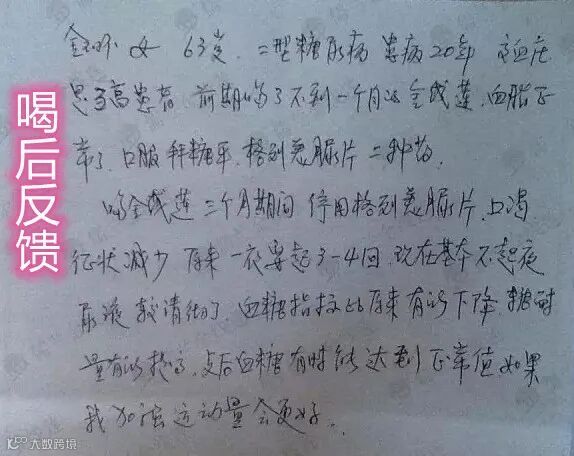 金环 女 63岁. 二型糖尿病 患病20年 高血压
是三高患者 前期喝了不到一个月的金线莲, 血脂正
常了, 口服 拜糖平, 格列美脲片 二种药.
喝金线莲三个月期间 停用格列美脲片, 口渴
征状减少 原来 一夜要起3-4回, 现在基本不起夜
尿液较清彻了, 血糖指标比原来有所下降, 糖耐
量有所提高, 餐后血糖有时能达到正常值 如果
我加强运动量会更好...
喝后反馈
大数跨境